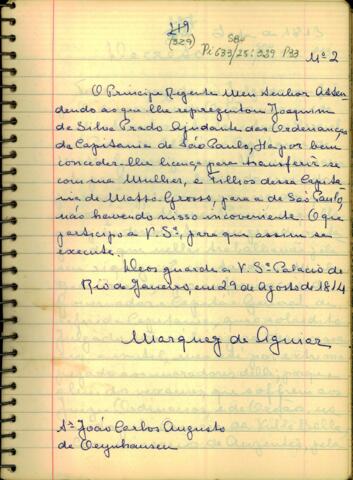 219
(329)
Pi 633/25:329 P33
Nº 2
O Principe Regente Meu Senhor Atten-
dendo ao que lhe representou Joaquim
da Silva Prado Ajudante das Ordenanças
da Capitania de São Paulo, Ha por bem
conceder-lhe licença para transferir-se
com sua Mulher, e Filhos dessa Capita-
nia de Matto-Grosso, para a de São Paulo,
não havendo nisso incoveniente. O que
participo a V. Sª, para que assim se
execute.
Deos guarde a V. Sª Palacio de
Rio de Janeiro, em 29 de Agosto de 1814
Marquez de Aguiar
Sr João Carlos Augusto
de Oeynhausen